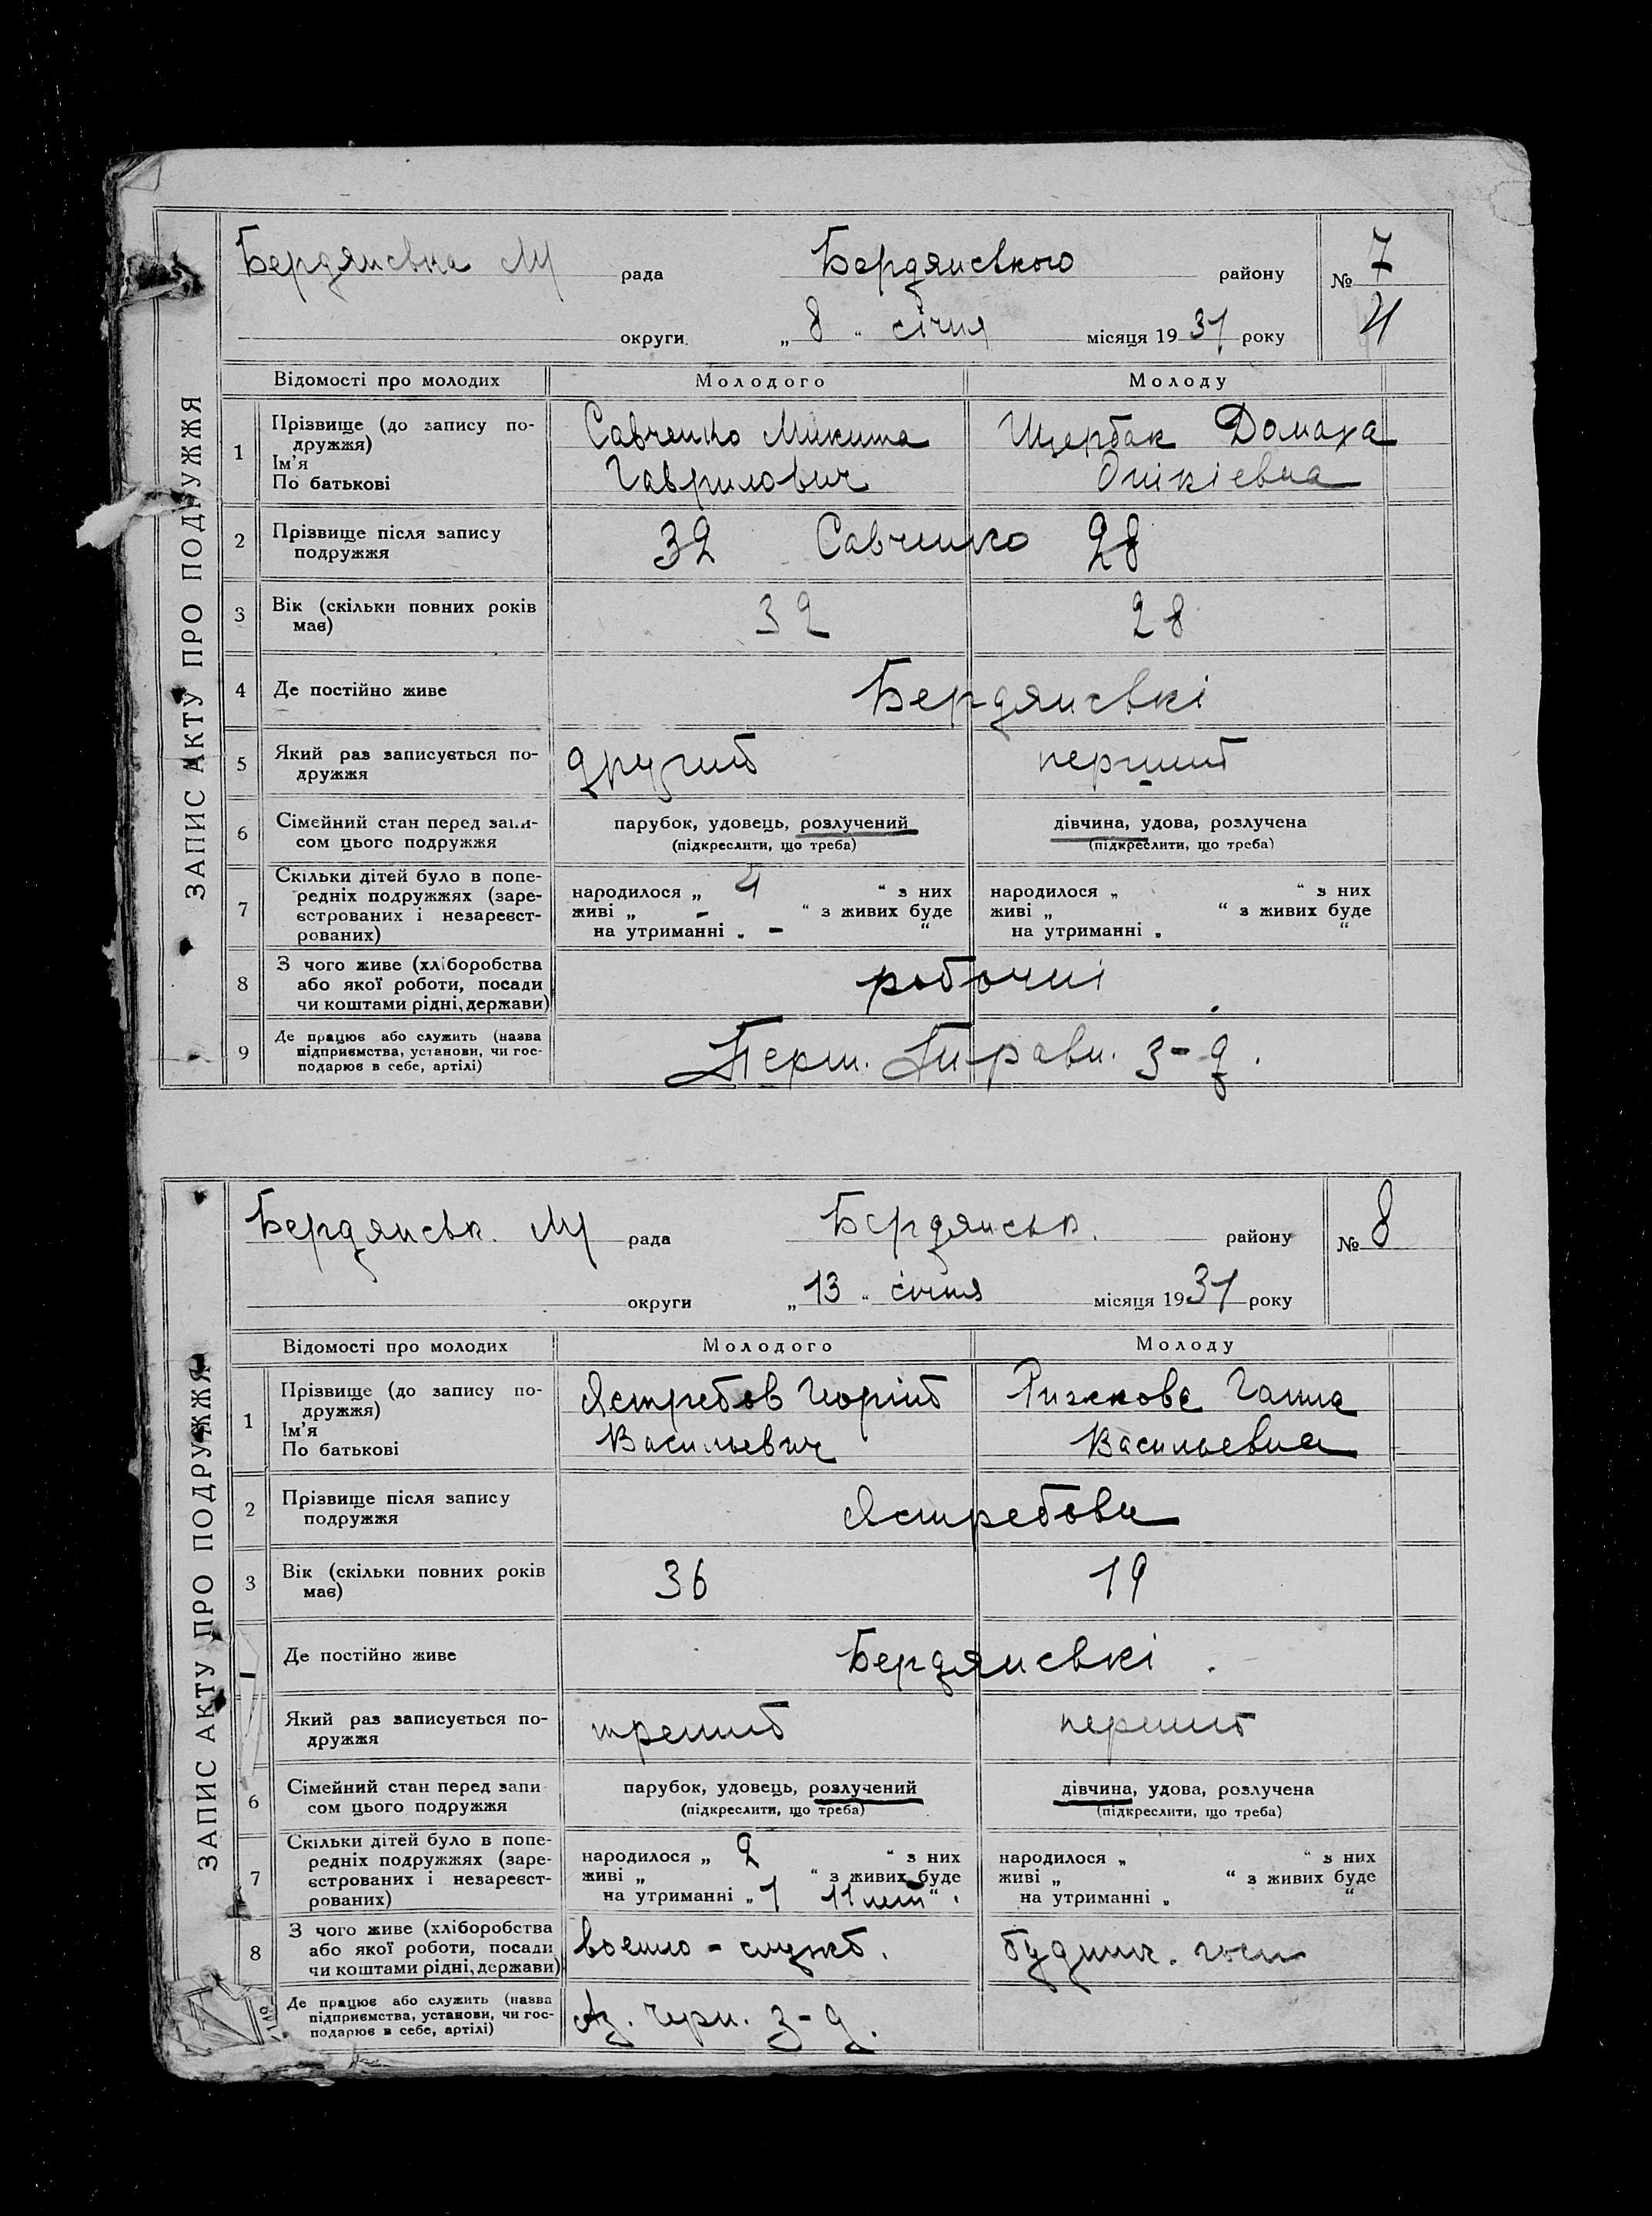 ЗАПИС АКТУ ПРО ПОДРУЖЖЯ
Бердянська М рада Бердянського району № 7
округи „ 8 “ січня місяця 19 31 року 4
Відомості про молодих Молодого Молоду
1 Прізвище (до запису по-
дружжя)
Ім’я
По батькові
Савченко Микита
Гаврилович
Щербак Домаха
Оникіевна
2 Прізвище після запису
подружжя
32 Савченко 28
3 Вік (скільки повних років
має)
32 28
4 Де постійно живе Бердянські
5 Який раз записується по-
дружжя
другий перший
6 Сімейний стан перед запи-
сом цього подружжя
парубок, удовець, розлучений
(підкреслити, що треба)
дівчина, удова, розлучена
(підкреслити, що треба)
7 Скільки дітей було в попе-
редніх подружжях (заре-
єстрованих і незареєст-
рованих)
народилося „ 4 “ з них
живі „ - “ з живих буде
на утриманні „ - “
народилося „ “ з них
живі „ “ з живих буде
на утриманні „ “
8 З чого живе (хліборобства
або якої роботи, посади
чи коштами рідні, держави)
робочиі
9 Де працює або служить (назва
підприємства, установи, чи гос-
подарює в себе, артілі)
Перш. Травн. з-д.
ЗАПИС АКТУ ПРО ПОДРУЖЖЯ
Бердянськ. М рада Бердянськ. району № 8
округи „ 13 “ січня місяця 19 31 року
Відомості про молодих Молодого Молоду
1 Прізвище (до запису по-
дружжя)
Ім’я
По батькові
Ястребов Георгій
Васильевич
Рижкова Ганна
Васильевна
2 Прізвище після запису
подружжя
Ястребови
3 Вік (скільки повних років
має)
36 19
Де постійно живе Бердянські .
Який раз записується по-
дружжя
третий перший
6 Сімейний стан перед запи-
сом цього подружжя
парубок, удовець, розлучений
(підкреслити, що треба)
дівчина, удова, розлучена
(підкреслити, що треба)
7 Скільки дітей було в попе-
редніх подружжях (заре-
єстрованих і незареєст-
рованих)
народилося „ 2 “ з них
живі „ “ з живих буде
на утриманні „ 1 11 лет “
народилося „ “ з них
живі „ “ з живих буде
на утриманні „ “
8 З чого живе (хліборобства
або якої роботи, посади
чи коштами рідні, держави)
военно - служб.
будинч.
Де працює або служить (назва
підприємства, установи, чи гос-
подарює в себе, артілі)
Аз. Черн. з-д.